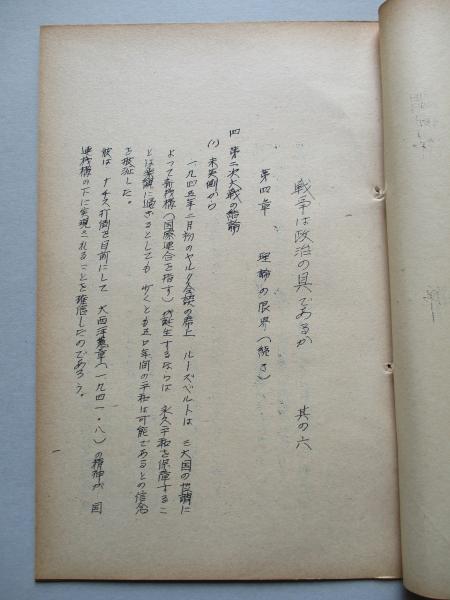 戦争は政治の具であるか　其の六
第四章　理論の限界（続き）
四 第二次大戦の結論
(1) 米英側から
一九四五年二月初のヤルタ会談の席上 ルーズベルトは 三大国の協調に
よって新機構（国際連合を指す）が誕生するならば 永久平和を保障するこ
とは楽観に過ぎるとしても 少くとも五〇年間の平和は可能であるとの信念
を披瀝した。
彼は ナチス打倒を目前にして 大西洋憲章（一九四一・八）の精神が 国
連機構の下に実現されることを確信したのであろう。